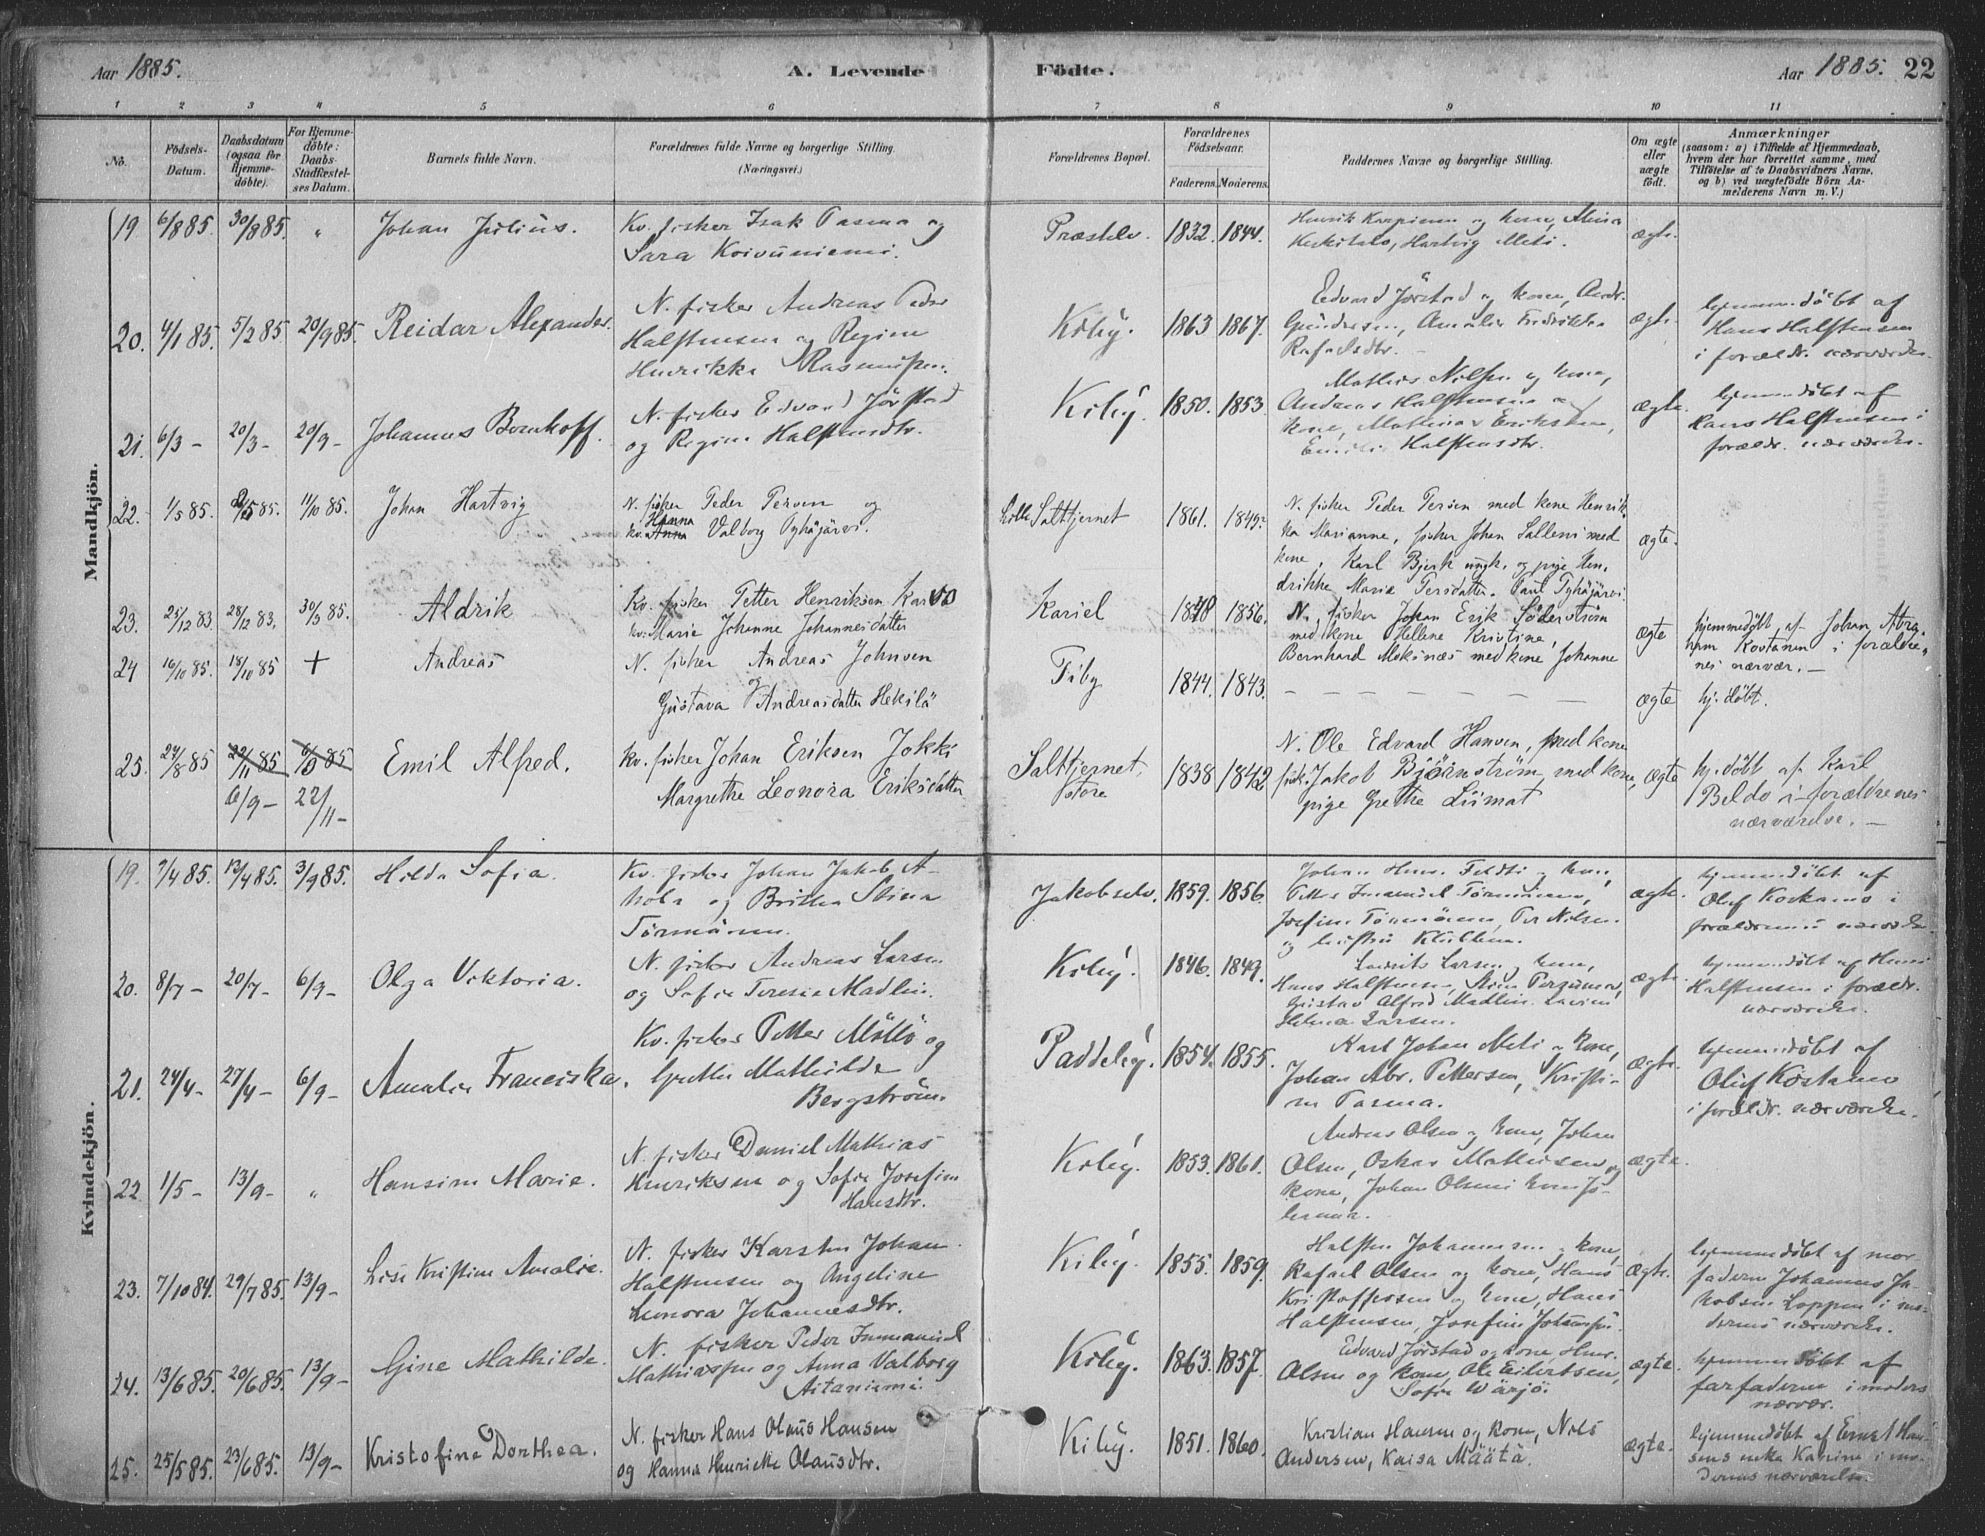 Aar 1885. A. Levende Födte. Aar 1885. 22
1 2 3 4 5 6 7 8 9 10 11
No.
Födsels-
Datum.
Daabsdatum
(ogsaa for
Hjemme-
döbte).
For Hjemme-
döbte:
Daabs-
Stadfæstel-
ses Datum.
Barnets fulde Navn.
Forældrenes fulde Navne og borgerlige Stilling.
(Næringsvei.)
Forældrenes Bopæl.
Forældrenes
Födselsaar.
Faderens. Moderens.
Faddernes Navne og borgerlige Stilling.
Om ægte
eller
uægte
födt.
Anmærkninger
(saasom: a) i Tilfælde af Hjemmedaab,
hvem der har forrettet samme, med
Tilföielse af to Daabsvidners Navne,
og b) ved uægtefödte Börn An-
melderens Navn m. V.)
Mandkjön.
19. 6/8 85. 30/8 85. „ Johan Julius.
Kv. fisker Isak Tasma og
Sara Koivuniemi.
Præstelv. 1832. 1844.
Henrik Karpinen og kone,
Hartvig Meti.
ægte.
20. 4/1 85. 5/2 85. 20/9 85. Reidar Alexander.
N. fisker Andreas Peder
Halfstensen og Regine
Henrikke Rasmussen.
Kiby. 1863 1867.
Edvard Jörstad og kone, Andr.
Gundersen, Amalie Fredrikke
Rafaelsdtr.
ægte.
hjemmedöbt af
Hans Halfstensen
i foræld. nærværelse.
21. 6/3 – 20/3 – 20/9 – Johannes Bernhoff.
N. fisker Edvard Jörstad
og Regine Halfstensdtr.
Kiby. 1850. 1853.
Mathis Nilsen og kone,
Andreas Halfstensen og
kone, Eriksen,
Halfstensdtr.
ægte.
hjemmedöbt af
Hans Halfstensen i
forældr. nærværelse.
22. 1/5 85. 85. 11/10 85. Johan Hartvig
N. fisker Peder Persen og
Hanna
kv. Anna Valborg Pyhäjärvi.
Lille Saltkjernet 1861. 1845.
N. fisker Peder Persen med kone Henrik-
ka Marianne, fisker Johan Salleni med
kone, Karl Bjerk ungk. og pige Hen-
drikke Marie Persdatter. Paul Pyhäjärvi
ægte.
23. 25/12 83 28/12 83. 30/3 85. Aldrik
Kv. fisker Petter Henriksen Karvo
kv. Marie Johanne Johannesdatter
Kariel 1848 1856.
N. fisker Johan Erik Söderström
med kone Hellene Kristine,
Bernhard Moksnæs med kone Johanne
ægte
hjemmedöbt af Johan Abra-
ham Kostanen i forældre-
nes nærvær. –
24 16/10 85. 18/10 85 + Andreas
N. fisker Andreas Johnsen
Gustava Andreasdatter Heikilä
Fiby 1844. 1843.
– – – – – –
ægte hj. döbt.
25. 24/8 85 22/11 85 6/9 85 Emil Alfred.
6/9 – 22/11 –
kv. fisker Johan Eriksen Jokki
Margrethe Leonora Eriksdatter
Saltkjernet,
store
1838 1842
N. Ole Edvard Hansen, med kone
fisk. Jakob Björnström med kone,
pige Grethe Liimat
ægte
hj. döbt af Karl
Beldo i forældrenes
nærværelse. –
Kvindekjön.
19. 7/4 85. 13/4 85. 3/9 85. Hilda Sofia.
Kv. fisker Johan Jakob A-
hola og Britha Stina
Törmänen.
Jakobselv. 1859. 1856
Johan og kone,
Petter Immanuel Törmänen,
Josefine Törmänen, Per Nilsen
og
ægte.
hjemmedöbt af
Oluf Koskamo i
forældrenes nærværelse
20. 8/7 – 20/7 – 6/9 – Olga Viktoria.
N. fisker Andreas Larsen
og Sofie Teresie Madlin.
Kiby. 1846. 1849.
Laurits Larsen, kone,
Hans Halfstensen,
Gustav Alfred Madlin.
Helena Larsen.
ægte.
hjemmedöbt af Hans
Halfstensen i forældr.
nærværelse.
21. 24/4 – 27/4 – 6/9 – Amalie Franciska.
Kv. fisker Petter Möllö og
Grethe Mathilde
Bergström.
Paddeby. 1854. 1855.
Karl Johan Meti og kone,
Johan Abr. Pettersen, Kristi-
ne Tasma.
ægte.
hjemmedöbt af
Oluf Kostamo
i foræld. nærværelse.
22 1/5 – 13/9 – „ Hansine Marie.
N. fisker Daniel Mathias
Henriksen og Sofie Josefine
Hansdtr.
Kiby. 1853. 1861.
Andreas Olsen og kone, Johan
Olsen, Oskar Mathisen og
kone, Johan Olsens kone Jo-
hanna.
ægte.
23. 7/10 84. 29/7 85. 13/9 – Lise Kristine Amalie.
N. fisker Karsten Johan
Halfstensen og Angeline
Leonora Johannesdtr.
Kiby. 1855. 1859.
Halfsten Johannesen og kone,
Rafael Olsen og kone, Hans
Kristoffersen og kone, Hans
Halfstensen, Josefine
ægte.
hjemmedöbt af mor-
faderen Johannes Ja-
kobsen Loppen i mo-
derens nærværelse.
24. 13/6 85. 20/6 85. 13/9 – Gine Mathilde.
N. fisker Peder Immanuel
Mathiassen og Anna Valborg
Aitaniemi.
Kiby. 1863. 1857.
Edvard Jörstad og kone, Henr.
Olsen og kone, Ole Eilertsen,
Sofie Wärjö.
ægte.
hjemmedöbt af
farfaderen i moders
nærvær.
25. 25/5 85. 23/6 85. 13/9 – Kristofine Dorthea.
N. fisker Hans Olaus Hansen
og Hanna Henrikke Olausdtr.
Kiby. 1851. 1860.
Kristian Hansen og kone, Nils
Andersen, Kaisa Määtä.
ægte.
hjemmedöbt af Ernst Han-
sens enke Katrine i mo-
derens nærværelse.